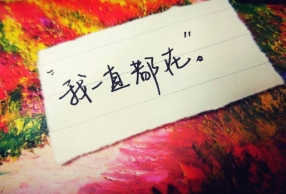 "我一直都在"。